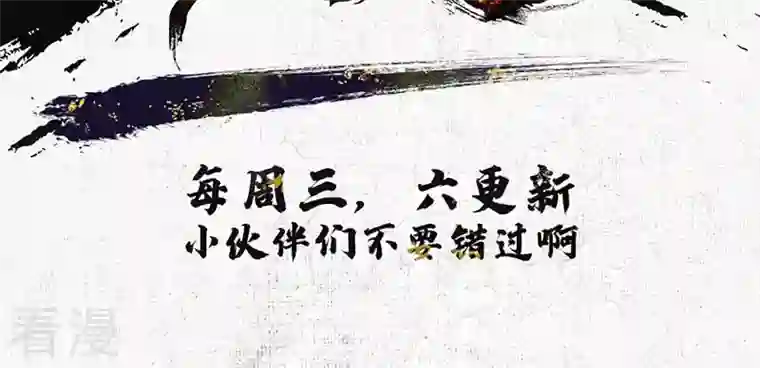 每周三，六更新
小伙伴们不要错过啊
看漫